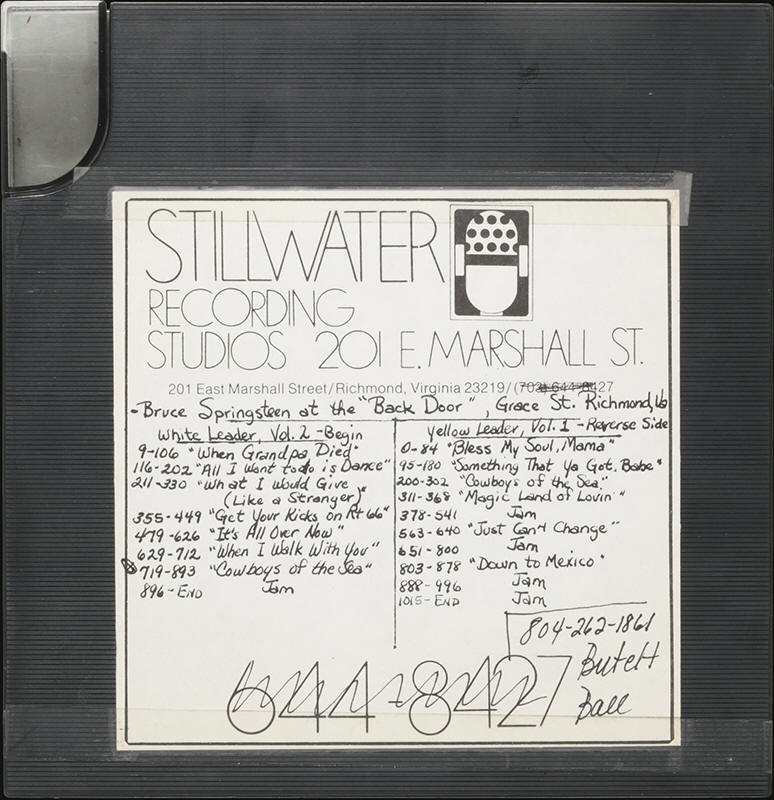 STILLWATER
RECORDING
STUDIOS 201 E. MARSHALL ST.
201 East Marshall Street/Richmond, Virginia 23219/(703) 644-8427
-Bruce Springsteen at the "Back Door", Grace St. Richmond, Va
White Leader, Vol. 2 -Begin
9-106 "When Grandpa Died"
116-202 "All I Want to do is Dance"
211-330 "What I Would Give
(Like a Stranger)"
355-449 "Get Your Kicks on Rt 66"
479-626 "It's All Over Now"
629-712 "When I Walk With You"
719-893 "Cowboys of the Sea"
896-END Jam
Yellow Leader, Vol. 1 -Reverse Side
0-84 "Bless My Soul, Mama"
95-180 "Something That Ya Got, Babe"
200-302 "Cowboys of the Sea"
311-368 "Magic Land of Lovin'"
378-541 Jam
563-640 "Just Can't Change"
651-800 Jam
803-878 "Down to Mexico"
888-996 Jam
1015-END Jam
804-262-1861
Butch
Ball
644-8427